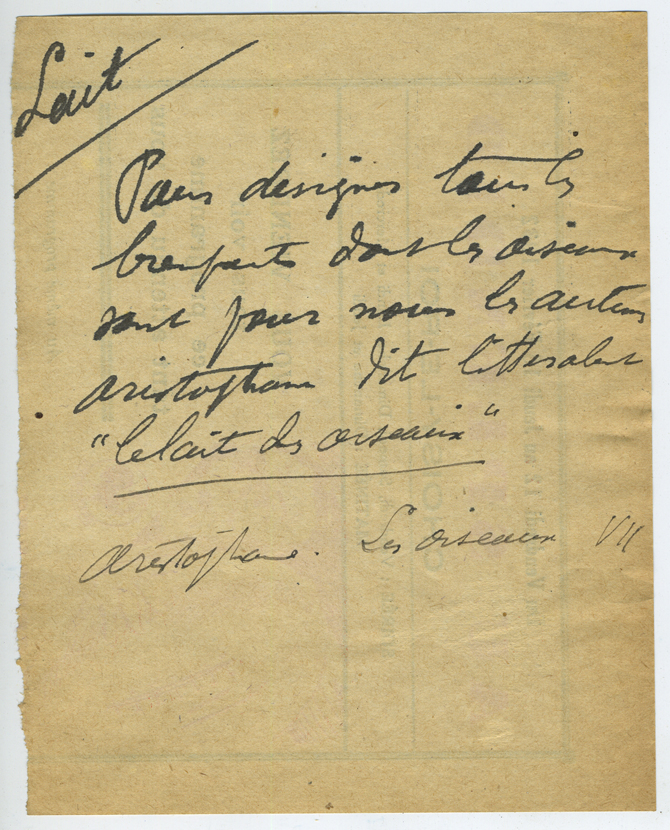 Lait
Pour désigner tous les
bienfaits dont les oiseaux
sont pour nous les auteurs
Aristophane dit littéralent
"le lait des oiseaux"
Aristophane. Les oiseaux VII